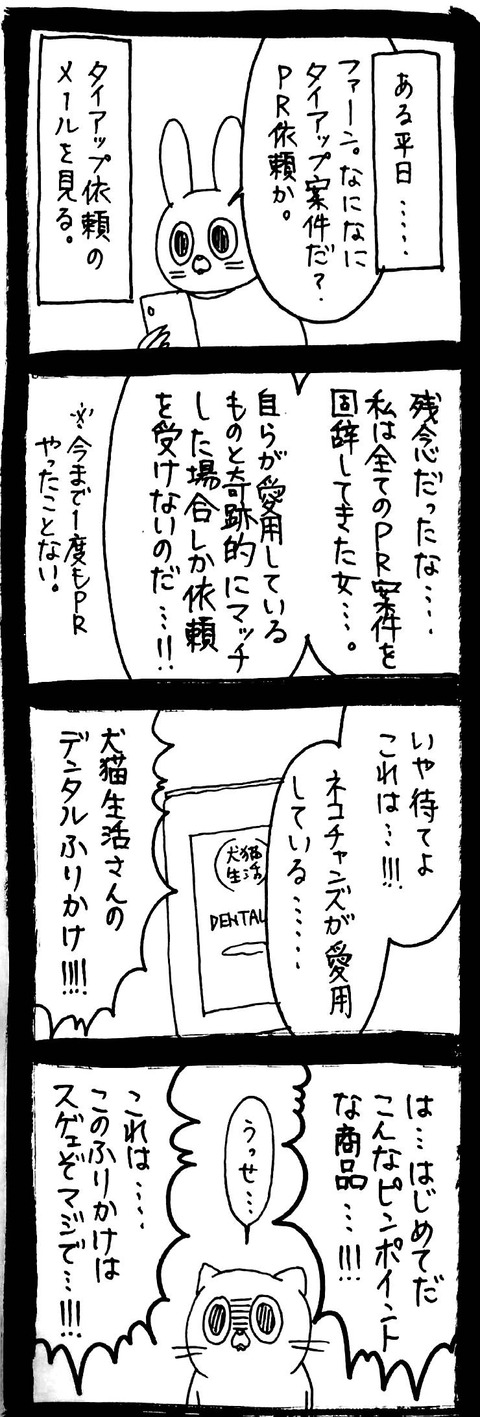 ある平日……
ファーン。なになに
タイアップ案件だ？
PR依頼か。
タイアップ依頼の
メールを見る。
残念だったな…。
私は全てのPR案件を
固辞してきた女…。
自らが愛用している
ものと奇跡的にマッチ
した場合しか依頼
を受けないのだ…!!
※今まで1度もPR
やったことない。
いや待てよ
これは…!!!
ネコチャンズが愛用
している……
犬猫
生活
DENTAL
犬猫生活さんの
デンタルふりかけ!!!!
は…はじめてだ
こんなピンポイント
な商品…!!!
うっせ…
これは…
このふりかけは
スゲェぞマジで…!!!